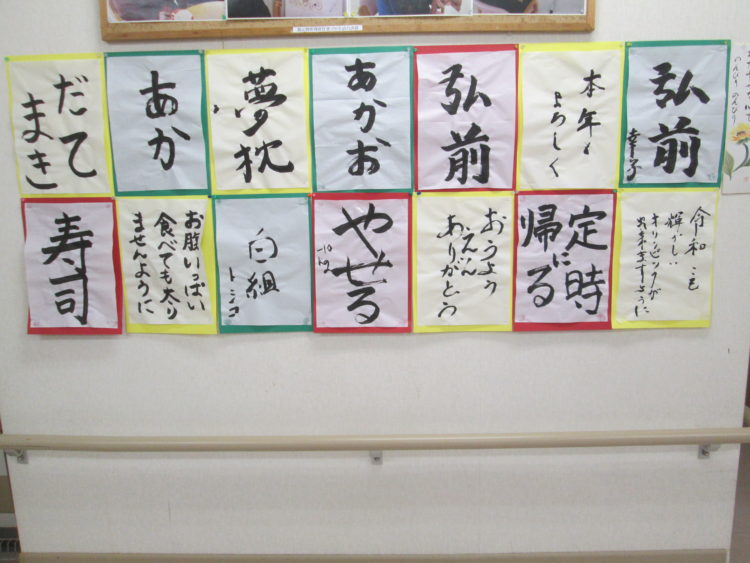 だて
まき
あか
夢枕
あかお
弘前
本年も
よろしく
弘前
幸子
寿司
お腹いっぱい
食べても太り
ませんように
白組
トシコ
やせる
-10
kg
おうよう
ええん
ありがとう
定時
に
帰る
令和二色
輝かしい
オリンピックが
出来ますように
のんびり のんびり